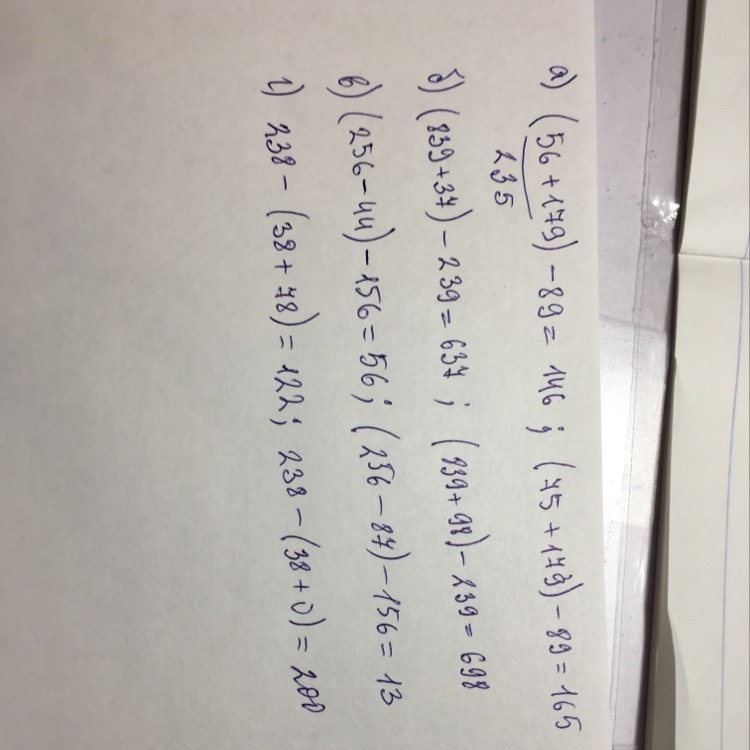 а) (56+179)-89= 146; (75+179)-89=165
235
б) (839+37)-239=637; (839+98)-239=698
в) (256-44)-156=56; (256-87)-156=13
г) 238-(38+78)=122; 238-(38+0)=200